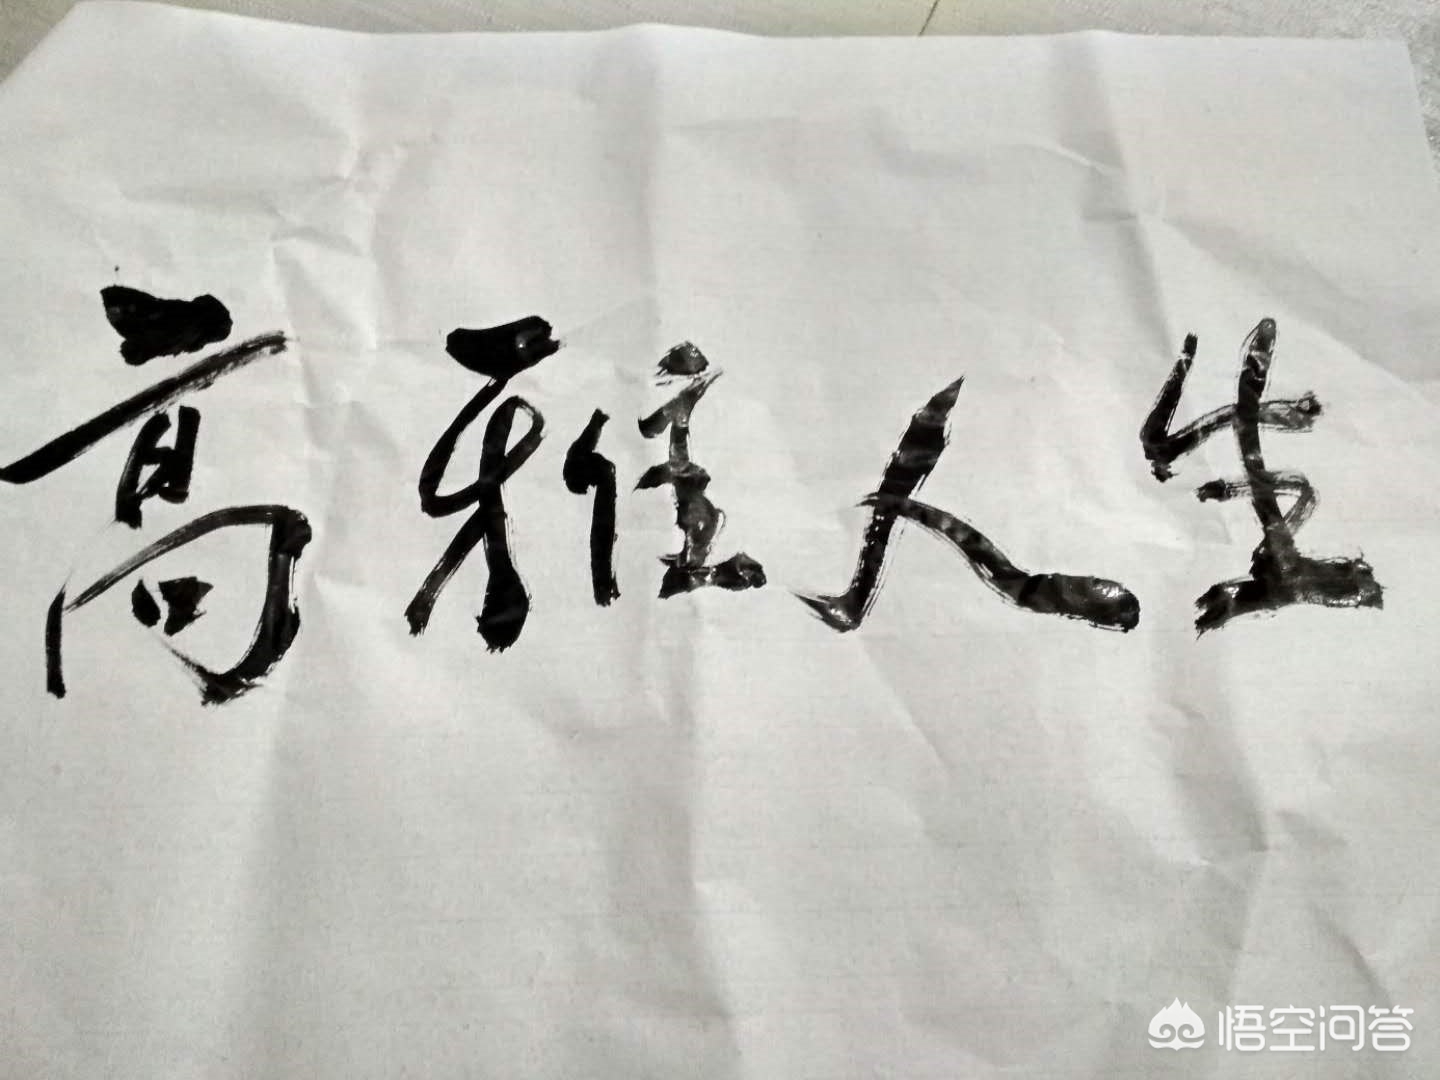 高雅人生
悟空问答